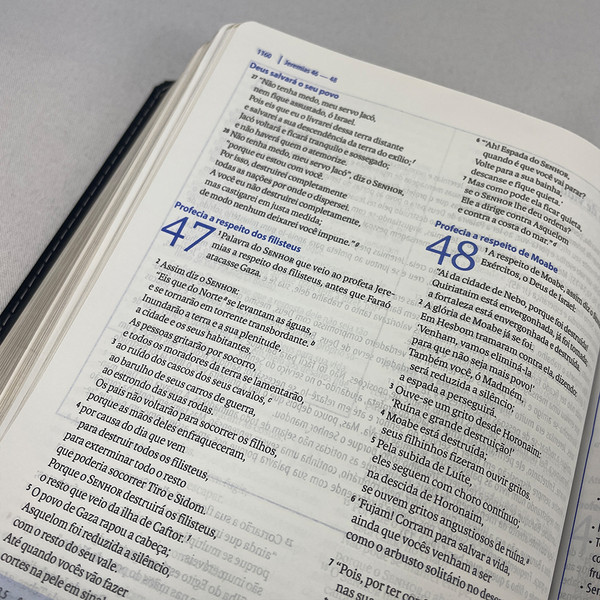 1160 | Jeremias 46 — 48
Deus salvará o seu povo
27 "Não tenha medo, meu servo Jacó,
nem fique assustado, ó Israel.
Pois eis que eu o livrarei dessa terra distante
e salvarei a sua descendência da terra do exílio; f
Jacó voltará e ficará tranquilo e sossegado;
e não haverá quem o atemorize.
28 Não tenha medo, meu servo Jacó", diz o SENHOR,
"porque eu estou com você.
Por isso, destruirei completamente
todas as nações por onde o dispersei.
A você eu não destruirei completamente,
mas castigarei em justa medida;
de modo nenhum deixarei você impune." g
Profecia a respeito dos filisteus
47 1 Palavra do SENHOR que veio ao profeta Jere-
mias a respeito dos filisteus, antes que Faraó
atacasse Gaza.
2 Assim diz o SENHOR:
"Eis que do Norte a se levantam as águas,
e se tornarão em torrente transbordante. b
Inundarão a terra e a sua plenitude,
a cidade e os seus habitantes.
As pessoas gritarão por socorro,
e todos os moradores da terra se lamentarão,
3 ao ruído dos cascos dos seus cavalos, c
ao barulho de seus carros de guerra,
ao estrondo das suas rodas.
Os pais não voltarão para socorrer os filhos,
porque as mãos deles enfraqueceram,
4 por causa do dia que vem
para destruir todos os filisteus,
para exterminar todo o resto
que poderia socorrer Tiro e Sidom.
Porque o SENHOR destruirá os filisteus,
o resto que veio da ilha de Caftor.
5 O povo de Gaza rapou a cabeça;
Asquelom foi reduzida a silêncio,
com o resto do seu vale.
Até quando vocês vão fazer
cortes na pele em sinal
6 "Ah! Espada do SENHOR,
quando é que você vai parar?
Volte para a sua bainha,
descanse e fique quieta.
7 Mas como pode ela ficar quieta,
se o SENHOR lhe deu ordens?
Ele a dirige contra Asquelom
e contra a costa do mar."
Profecia a respeito de Moabe
48 1 A respeito de Moabe, assim diz o
Exércitos, o Deus de Israel:
"Ai da cidade de Nebo, porque foi destruída!
Quiriataim está envergonhada, já foi tomada;
a fortaleza está envergonhada e destruída.
2 A glória de Moabe já se foi.
Em Hesbom tramaram contra ela, dizendo:
'Venham, vamos eliminá-la
para que não seja mais povo!'
Também você, ó Madmém,
será reduzida a silêncio;
a espada a perseguirá.
3 Ouve-se um grito desde Horonaim:
'Ruína e grande destruição!'
4 Moabe está destruída;
seus filhinhos fizeram ouvir gritos.
5 Pela subida de Luíte,
eles seguem com choro contínuo;
na descida de Horonaim,
se ouvem gritos angustiosos de ruína.
6 'Fujam! Corram para salvar a vida,
ainda que vocês venham a ser
como o arbusto solitário no deserto
7 "Pois, por ter
nas suas